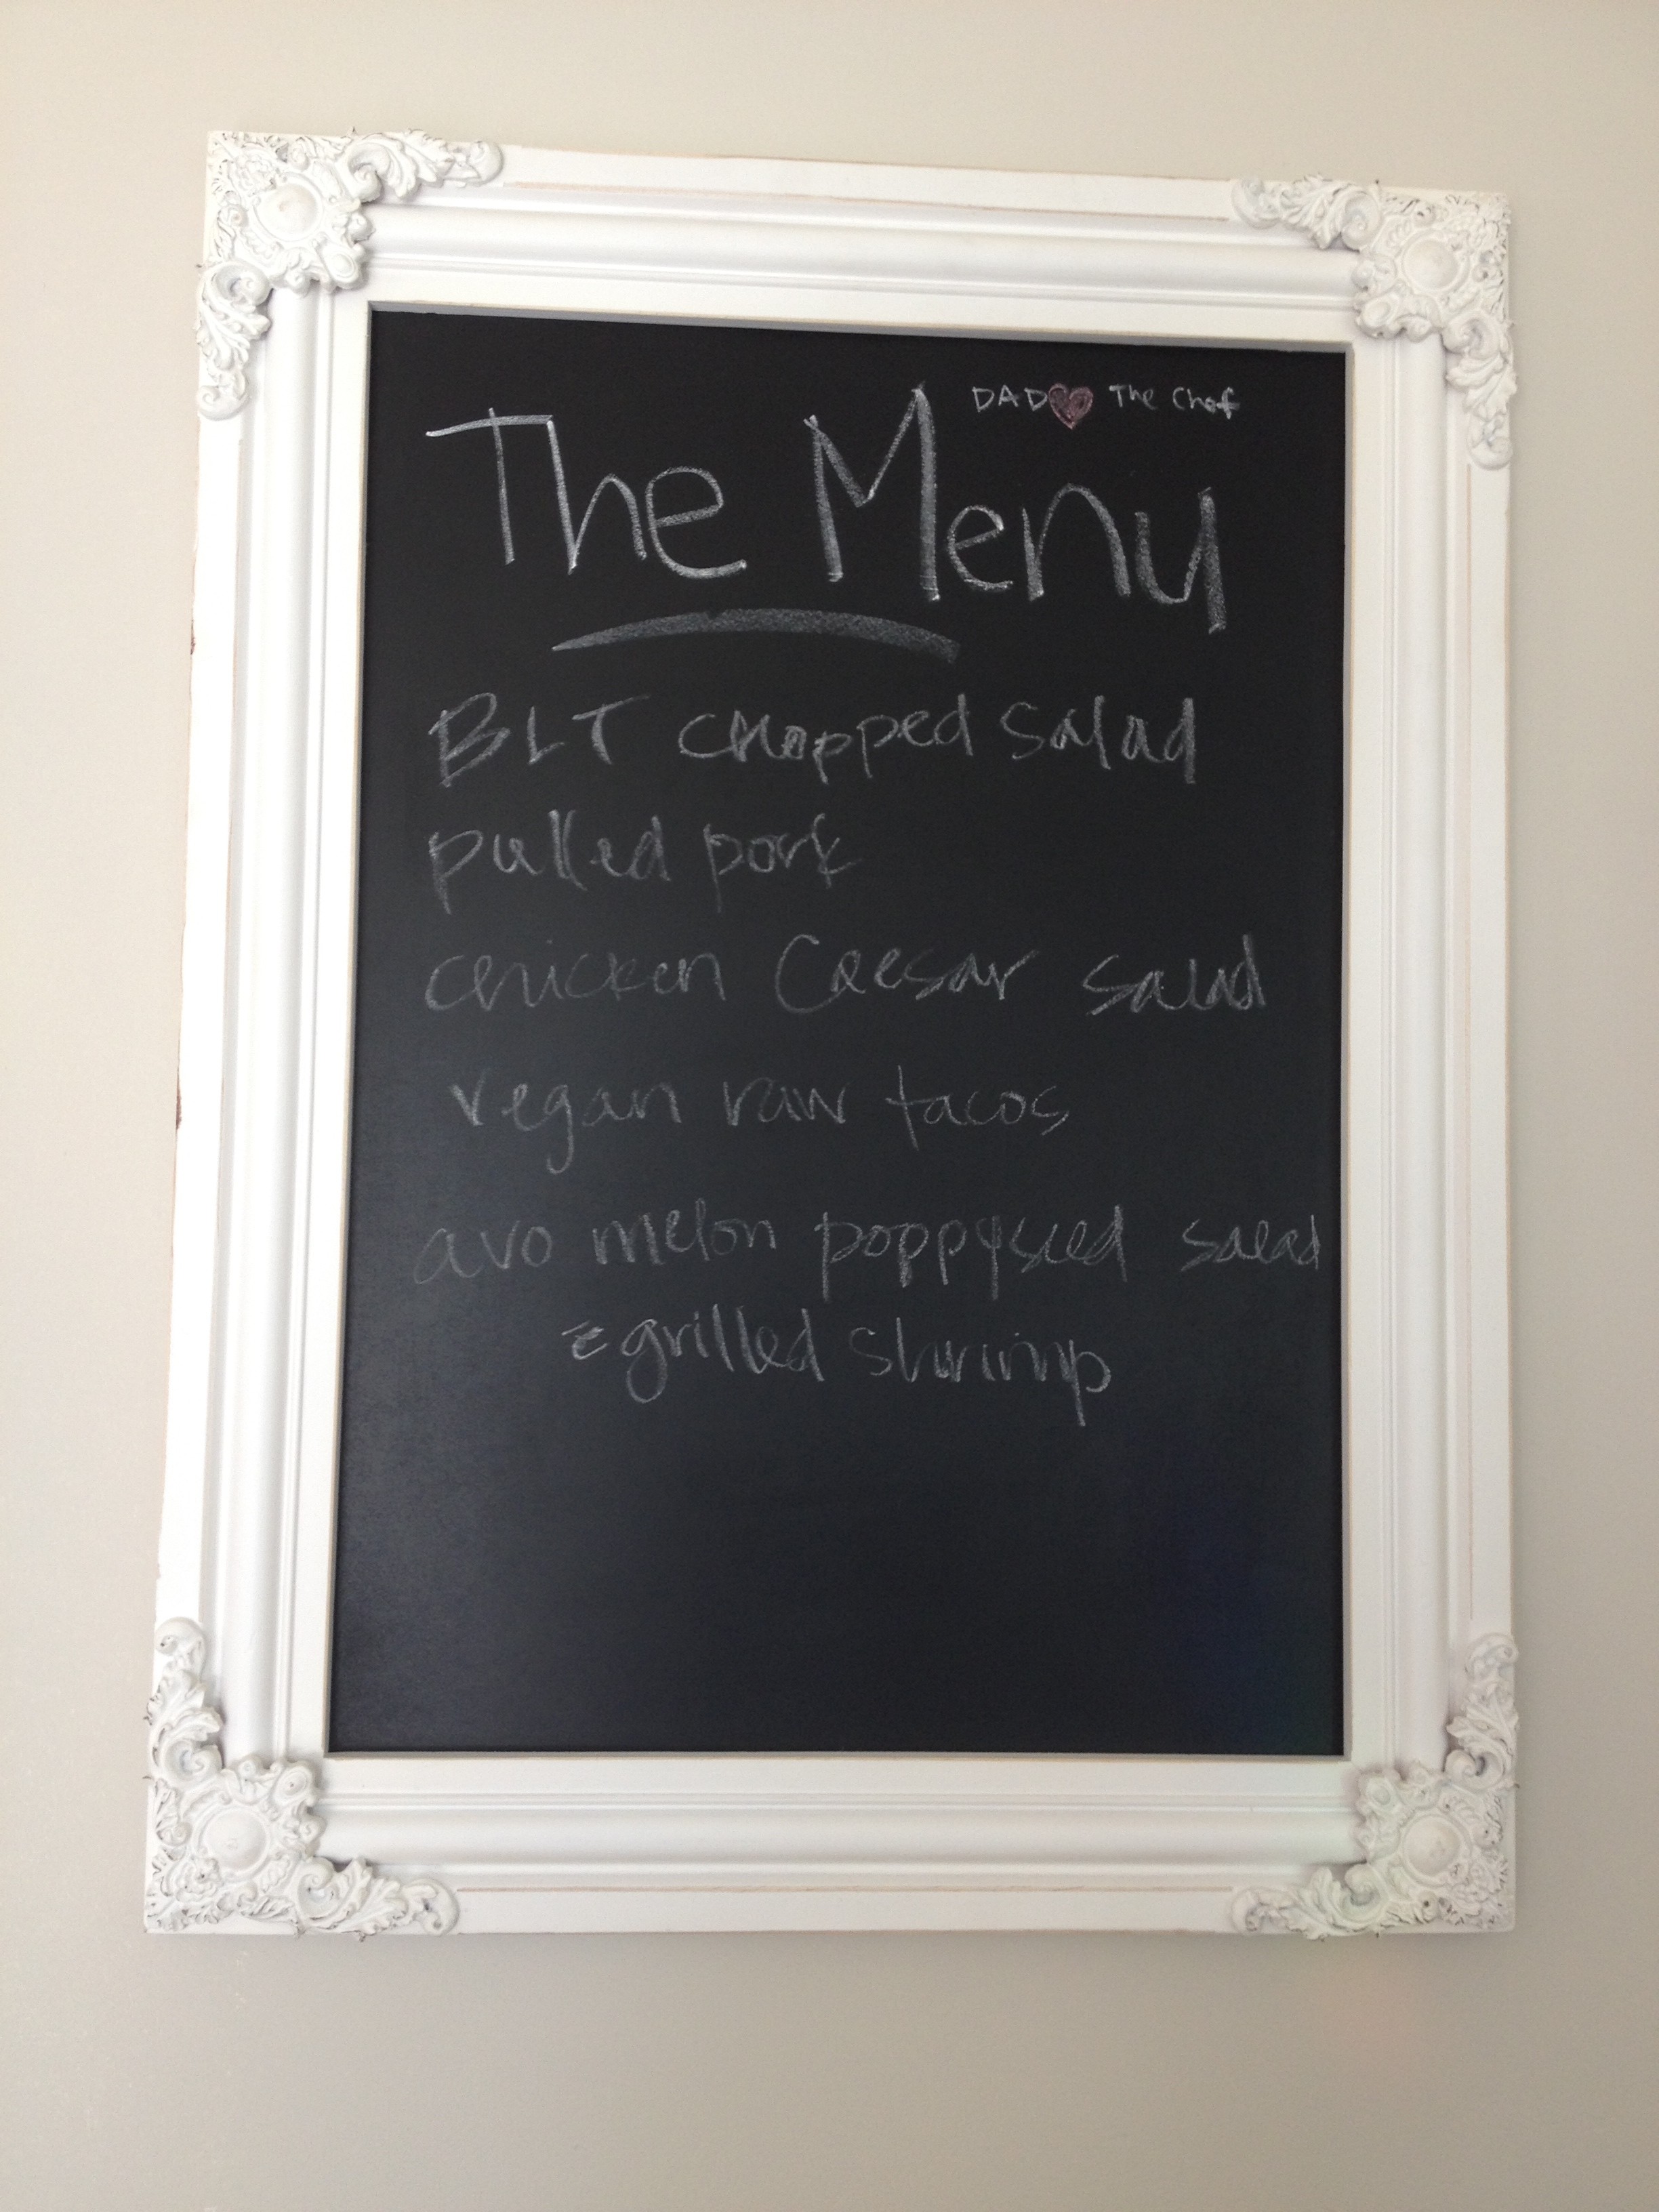 DAD ❤ The Chef
The Menu
BLT chopped salad
pulled pork
chicken Caesar salad
vegan raw tacos
avo melon poppyseed salad
grilled shrimp